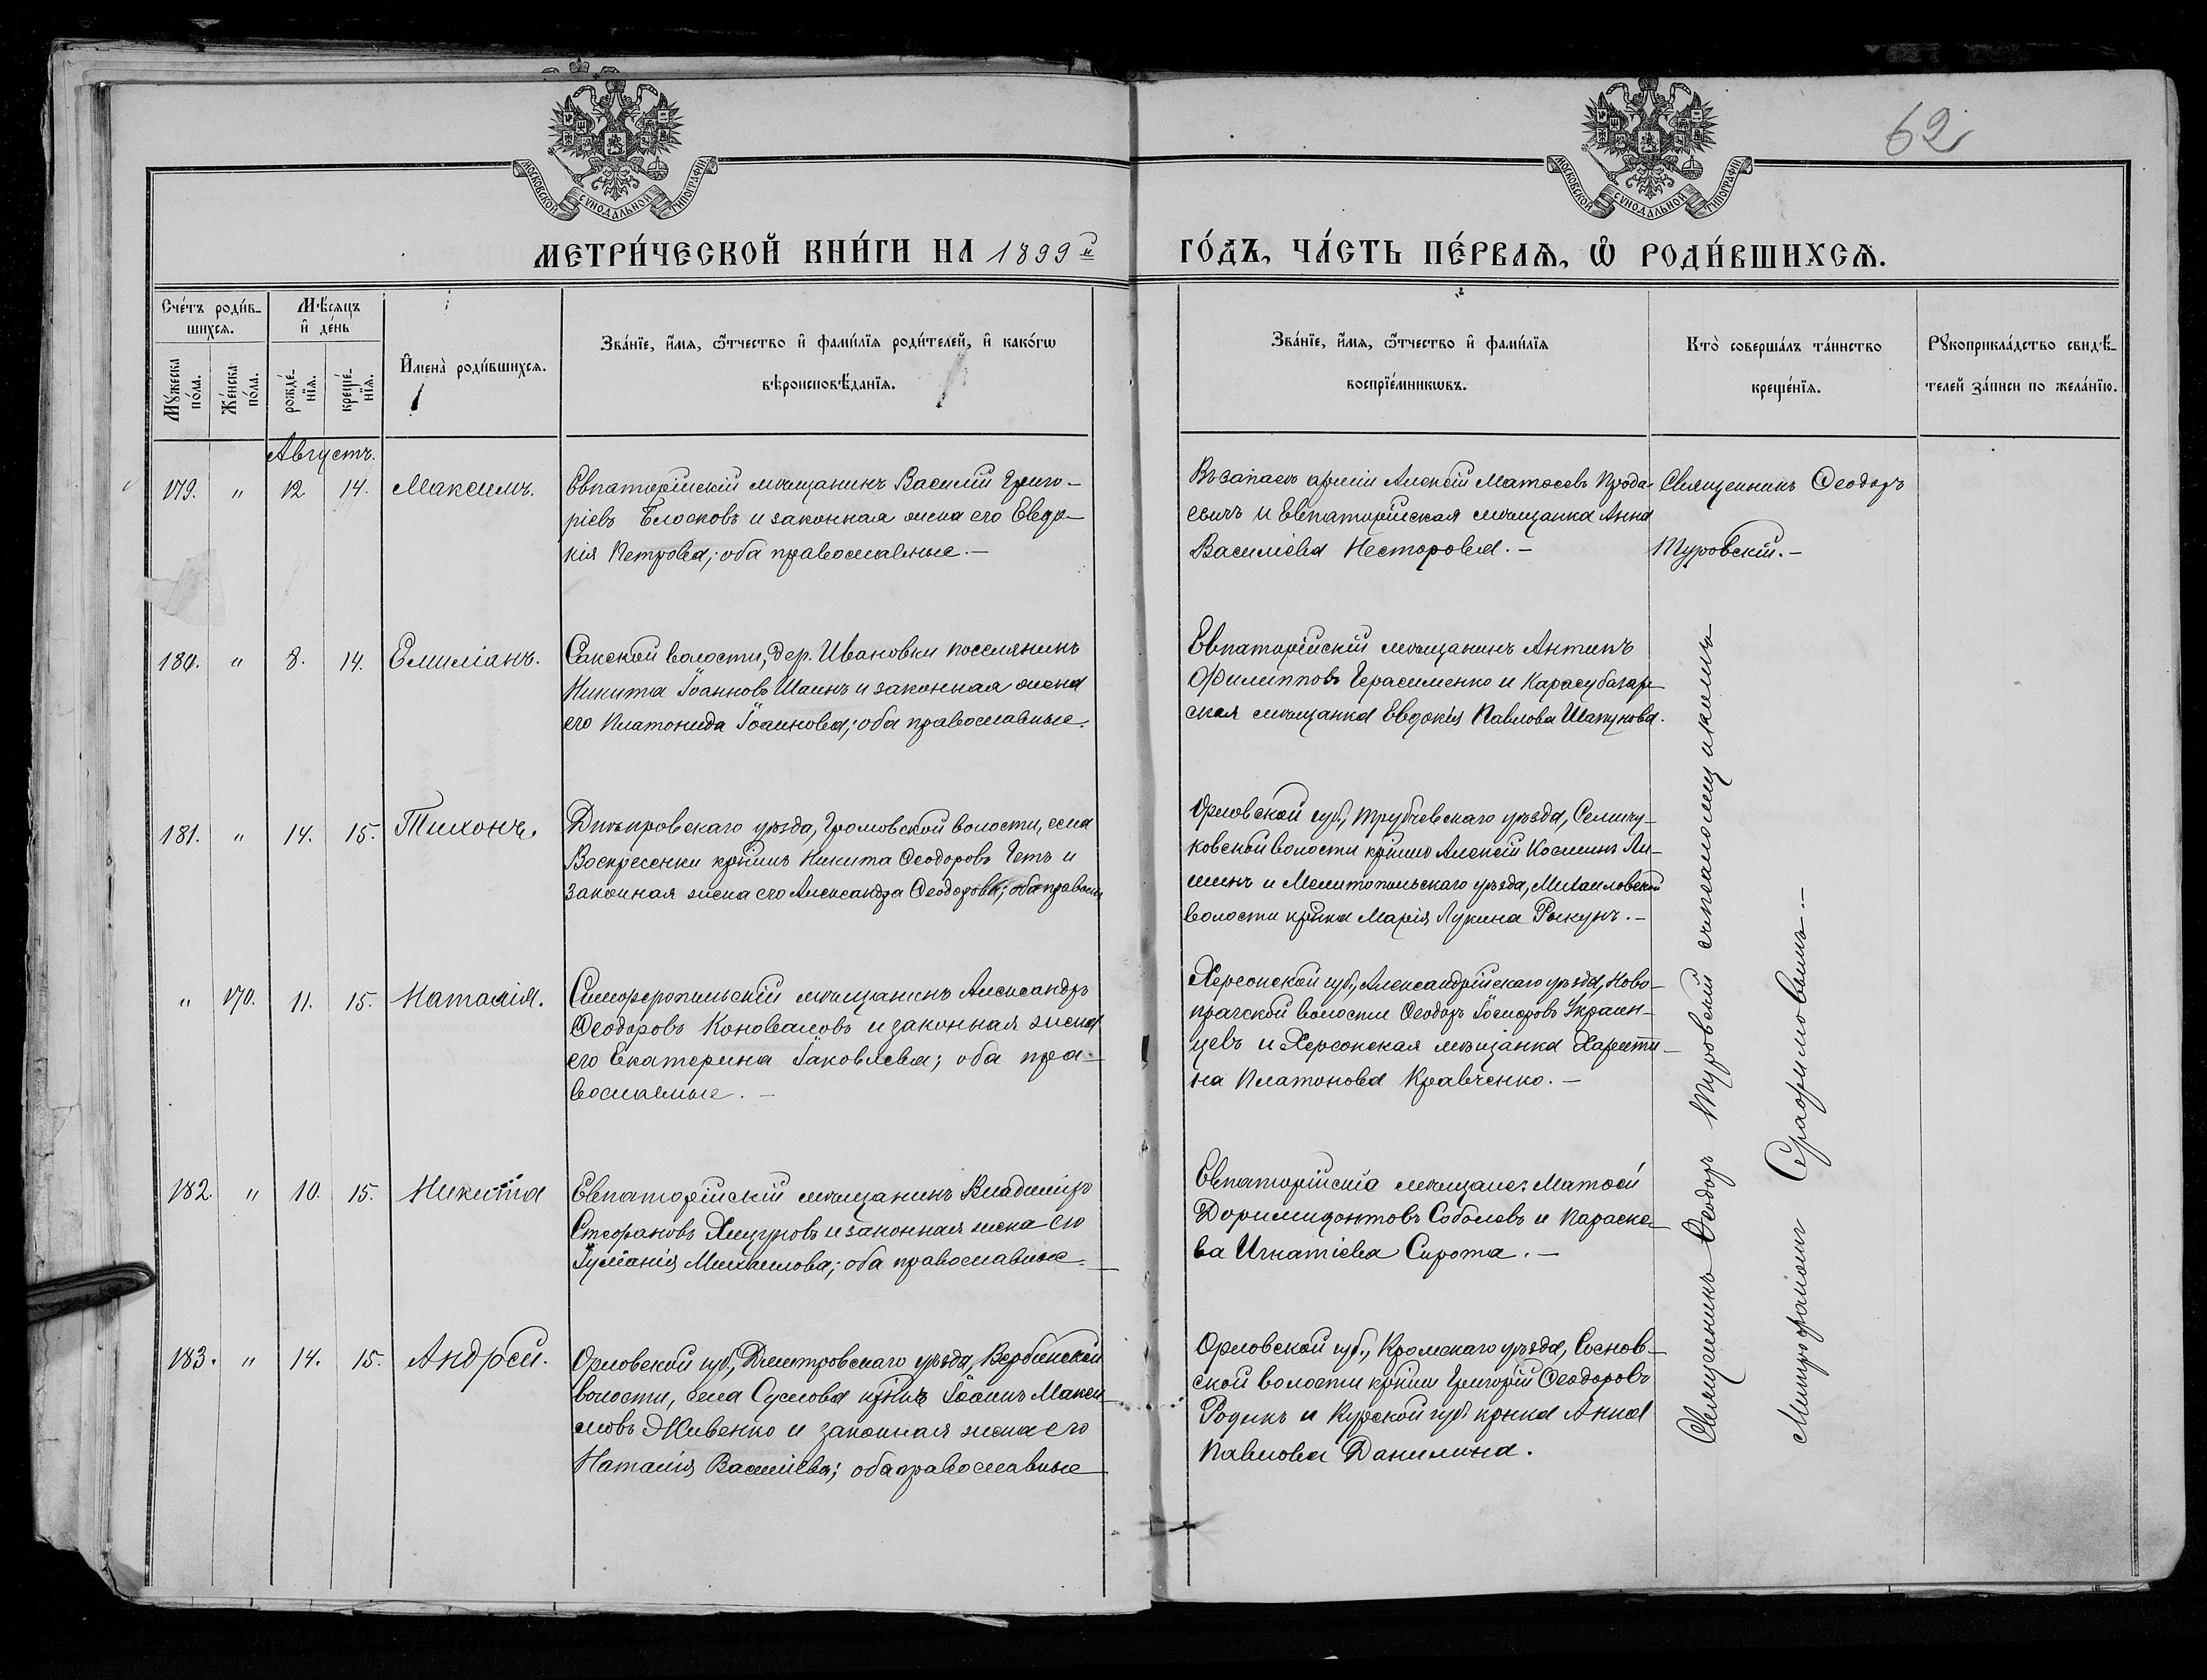 62
МОСКОВСКОЙ СѴНОДАЛЬНОЙ ТИПОГРАФІИ
МОСКОВСКОЙ СѴНОДАЛЬНОЙ ТИПОГРАФІИ
МЕТРИ́ЧЕСКОЙ КНИ́ГИ НА 1899й ГО́ДЪ, ЧА́СТЬ ПЕ́РВАѦ, Ѡ҆ РОДИ́ВШИХСѦ.
Сче́тъ роди́в-
шихсѧ.
Мꙋ́жеска по́ла.
Же́нска по́ла.
Мѣ́сяцъ
и҆ де́нь
рожде́-
нїѧ.
креще́-
нїѧ.
И҆мена̀ роди́вшихсѧ.
Зва́нїе, и҆́мѧ, ѻ҆́тчество и҆ фами́лїѧ роди́телей, и҆ како́гѡ
вѣроисповѣ́данїѧ.
Зва́нїе, и҆́мѧ, ѻ҆́тчество и҆ фами́лїѧ
воспрїе́мникѡвъ.
Кто̀ соверша́лъ та́инство
креще́нїѧ.
Рꙋкоприкла́дство свидѣ́-
телей за́писи по жела́нїю.
Августъ.
179. " 12 14. Максимъ.
Евпаторійскій мѣщанинъ Василій Григо-
ріевъ Блосковъ и законная жена его Евдо-
кія Петрова; оба православные.-
Въ запасѣ арміи Алексій Матѳеевъ Прода-
евичъ и Евпаторійская мѣщанка Анна
Василіева Несторова.-
Священникъ Ѳеодоръ
Туровскій.-
180. " 8. 14. Емиліанъ.
Сакской волости, дер. Ивановки поселянинъ
Никита Іоанновъ Шаинъ и законная жена
его Платонида Іоаннова; оба православные.
Евпаторійскій мѣщанинъ Антипъ
Филипповъ Герасименко и Карасубазар-
ская мѣщанка Евдокія Павлова Шапунова.
181. " 14. 15. Тихонъ.
Днѣпровскаго уѣзда, Громовской волости, села
Воскресенки кр̃нинъ Никита Ѳеодоровъ Четъ и
законная жена его Александра Ѳеодорова; оба правосл
Орловской губ., Трубчевскаго уѣзда, Семячу-
ковской волости кр̃нинъ Алексій Косминъ Ли-
шинъ и Мелитопольскаго уѣзда, Михаиловской
волости кр̃нка Марія Лукина Рыкунъ.-
" 170. 11. 15. Наталія.
Симферопольскій мѣщанинъ Александръ
Ѳеодоровъ Коноваловъ и законная жена
его Екатерина Іаковлева; оба пра-
вославные.-
Херсонской губ., Александрійскаго уѣзда, Ново-
прагской волости Ѳеодоръ Іосифовъ Украин-
цевъ и Херсонская мѣщанка Харити-
на Платонова Кравченко.-
182. " 10. 15. Никита
Евпаторійскій мѣщанинъ Владиміръ
Стефановъ и законная жена его
Іуліанія Михаилова; оба православные.-
Евпаторійскіе мѣщане: Матѳей
Доримидонтовъ Соболевъ и Параске-
ва Игнатіева Сирота.-
183. " 14. 15. Андрей.
Орловской губ., Дмитровскаго уѣзда, Вербинской
волости, села Суслова кр̃нинъ Іоаннъ Макси-
мовъ Живенко и законная жена его
Наталія Василіева; оба православные
Орловской губ., Кромскаго уѣзда, Соснов-
ской волости кр̃нинъ Григорій Ѳеодоровъ
Родинъ и Курской губ. кр̃нка Анна
Павлова Данилина.
Священникъ Ѳеодоръ Туровскій съ псаломщикомъ
Митрофаномъ Серафимовымъ.-